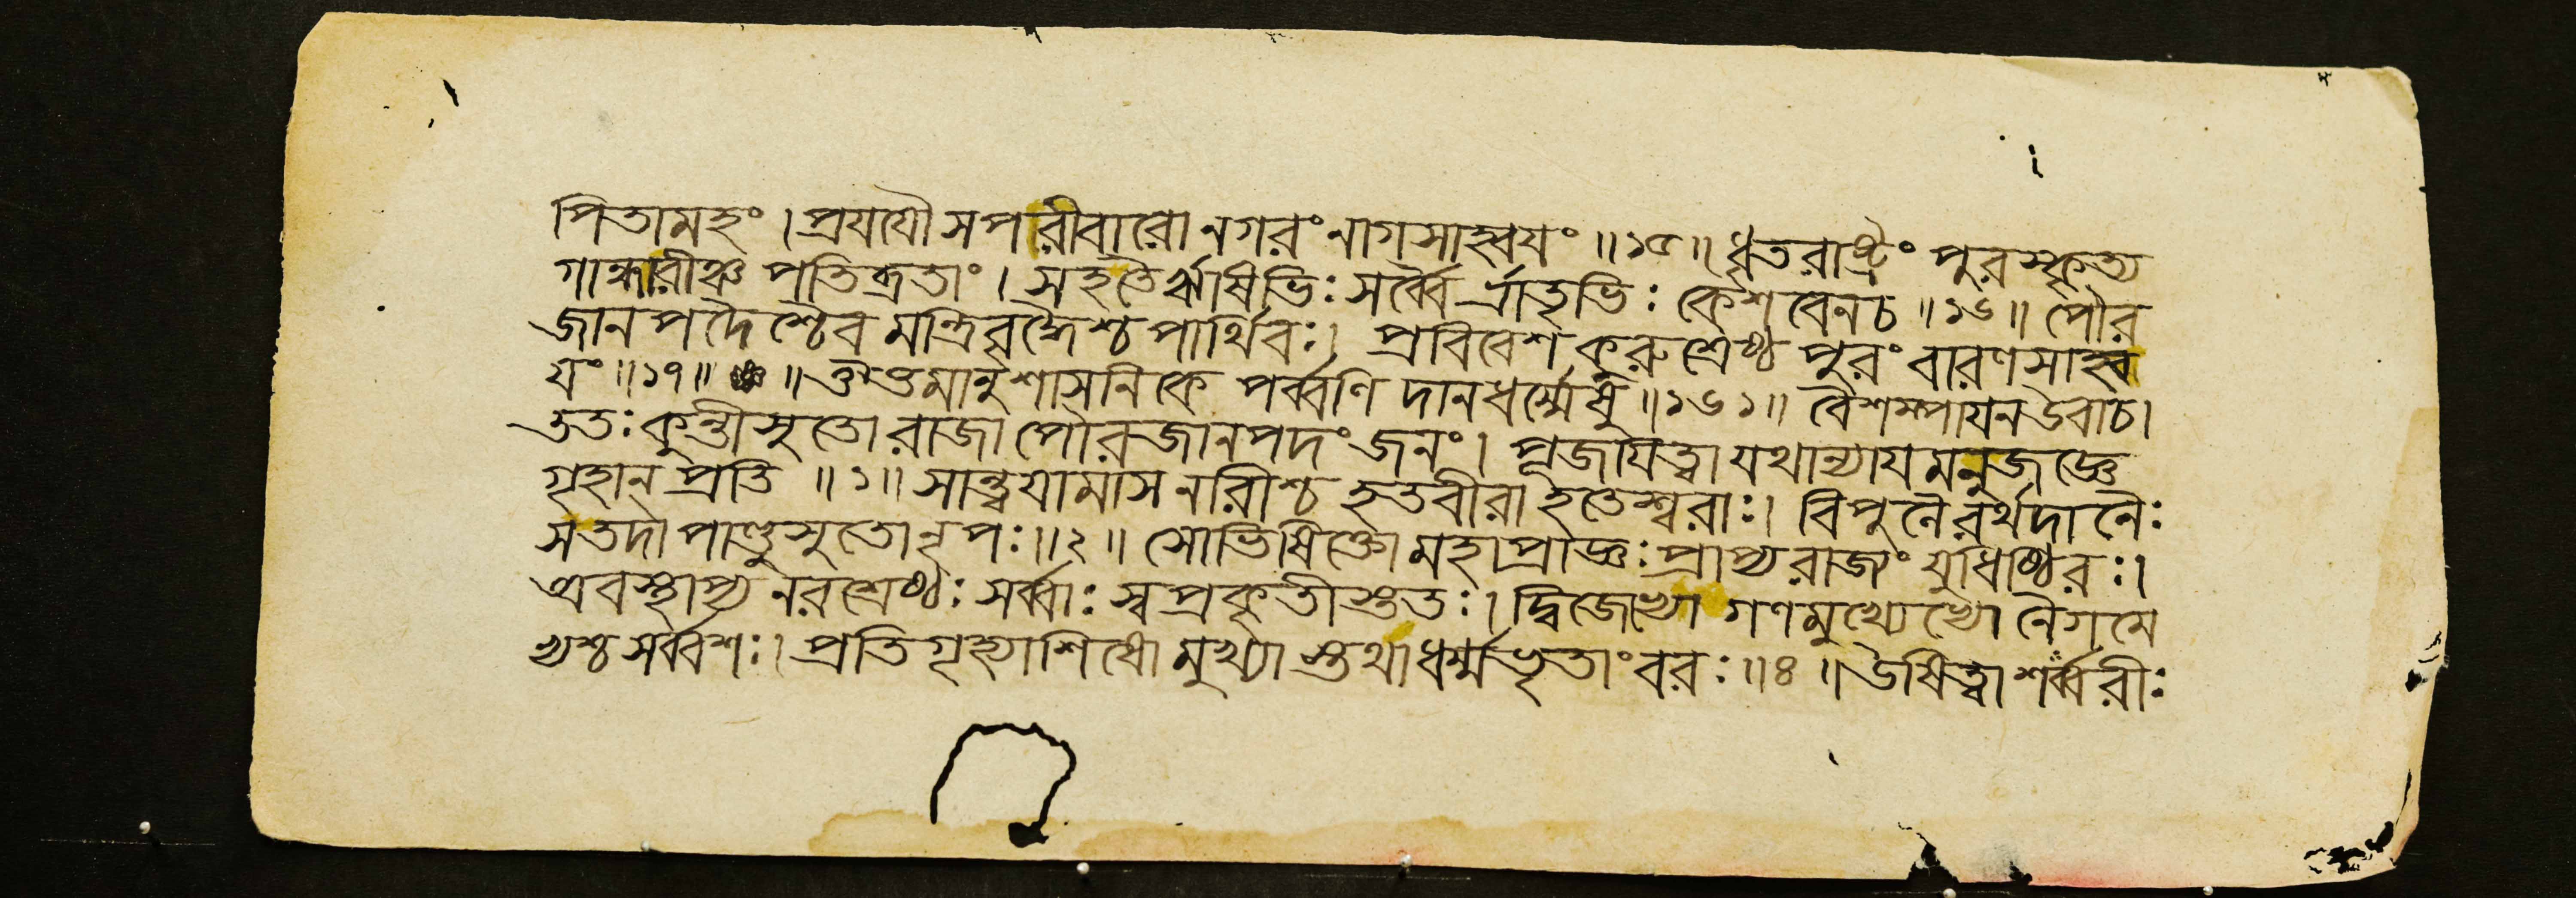 পিতামহং । প্রযযৌ সপরীবারো নগরং নাগসাহ্বযং ॥ ১৫ ॥ ধৃতরাষ্ট্রং পুরস্কৃত্য
গান্ধারীঞ্চ পতিব্রতাং । সহতৈর্ঋষিভিঃ সর্ব্বৈর্ভ্রাতৃভিঃ কেশবেনচ ॥ ১৬ ॥ পৌর
জানপদৈশ্চৈব মন্ত্রিবৃদ্ধৈশ্চ পার্থিবঃ । প্রবিবেশ কুরুশ্রেষ্ঠ পুরং বারণসাহ্ব
যং ॥ ১৭ ॥ ॥ ঔত্তমানুশাসনিকে পর্ব্বণি দানধর্ম্মেষু ॥ ১৬১ ॥ বৈশম্পাযন উবাচ ।
ততঃ কুন্তীসুতো রাজা পৌরজানপদং জনং । পূজাযিত্বা যথান্যাযমনুজজ্ঞে
গৃহান্ প্রতি ॥ ১ ॥ সান্ত্বযামাস নারীশ্চ হতবীরা হতেশ্বরাঃ । বিপুলৈরর্থদানৈঃ
সতদা পাণ্ডুসুতো নৃপঃ ॥ ২ ॥ সোভিষিক্তো মহাপ্রাজ্ঞঃ প্রাপ্য রাজ্যং যুধিষ্ঠিরঃ ।
অবস্থাপ্য নরশ্রেষ্ঠঃ সর্ব্বাঃ স্বপ্রকৃতীস্ততঃ । দ্বিজেভ্যো গণমুখ্যেভ্যো নৈগমে
ভ্যশ্চ সর্ব্বশঃ । প্রতিগৃহ্যাশিষো মুখ্যাস্তথা ধর্ম্মভৃতাং বরঃ ॥ ৪ ॥ উষিত্বা শর্ব্বরীঃ